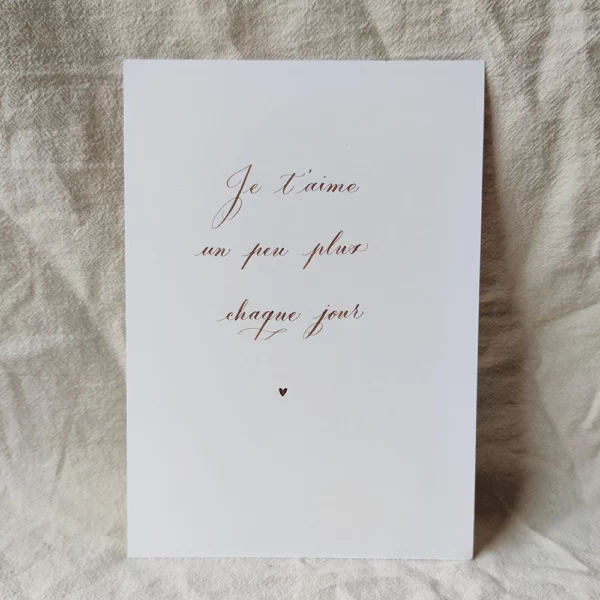 Je t'aime
un peu plus
chaque jour